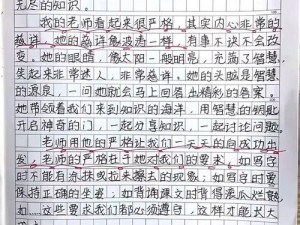 无尽的知识。
我的老师看起来很严格，其实内心非常的
慈祥。她的慈祥像波涛一样，有事不决不会改
变。她的眼睛，像太阳一般明亮，充满了智慧，
笑起来非常迷人，非常慈祥。她的头脑是智慧
的源泉，一问她就会马上回答出精彩的答案。
她带领着我们来到知识的海洋，用智慧的钥匙
开启神奇的门，一起分享知识，一起讨论问题。
老师用她的严格让我们一天天的向成功出
发。老师的严格在于她对我们的要求，如写字
时不能有涂抹或拉来擦去的现象；如写字时要
保持正确的坐姿，如背诵课文时背得滚瓜烂熟，
如……这些要求我们都必须遵守，这样才能长大